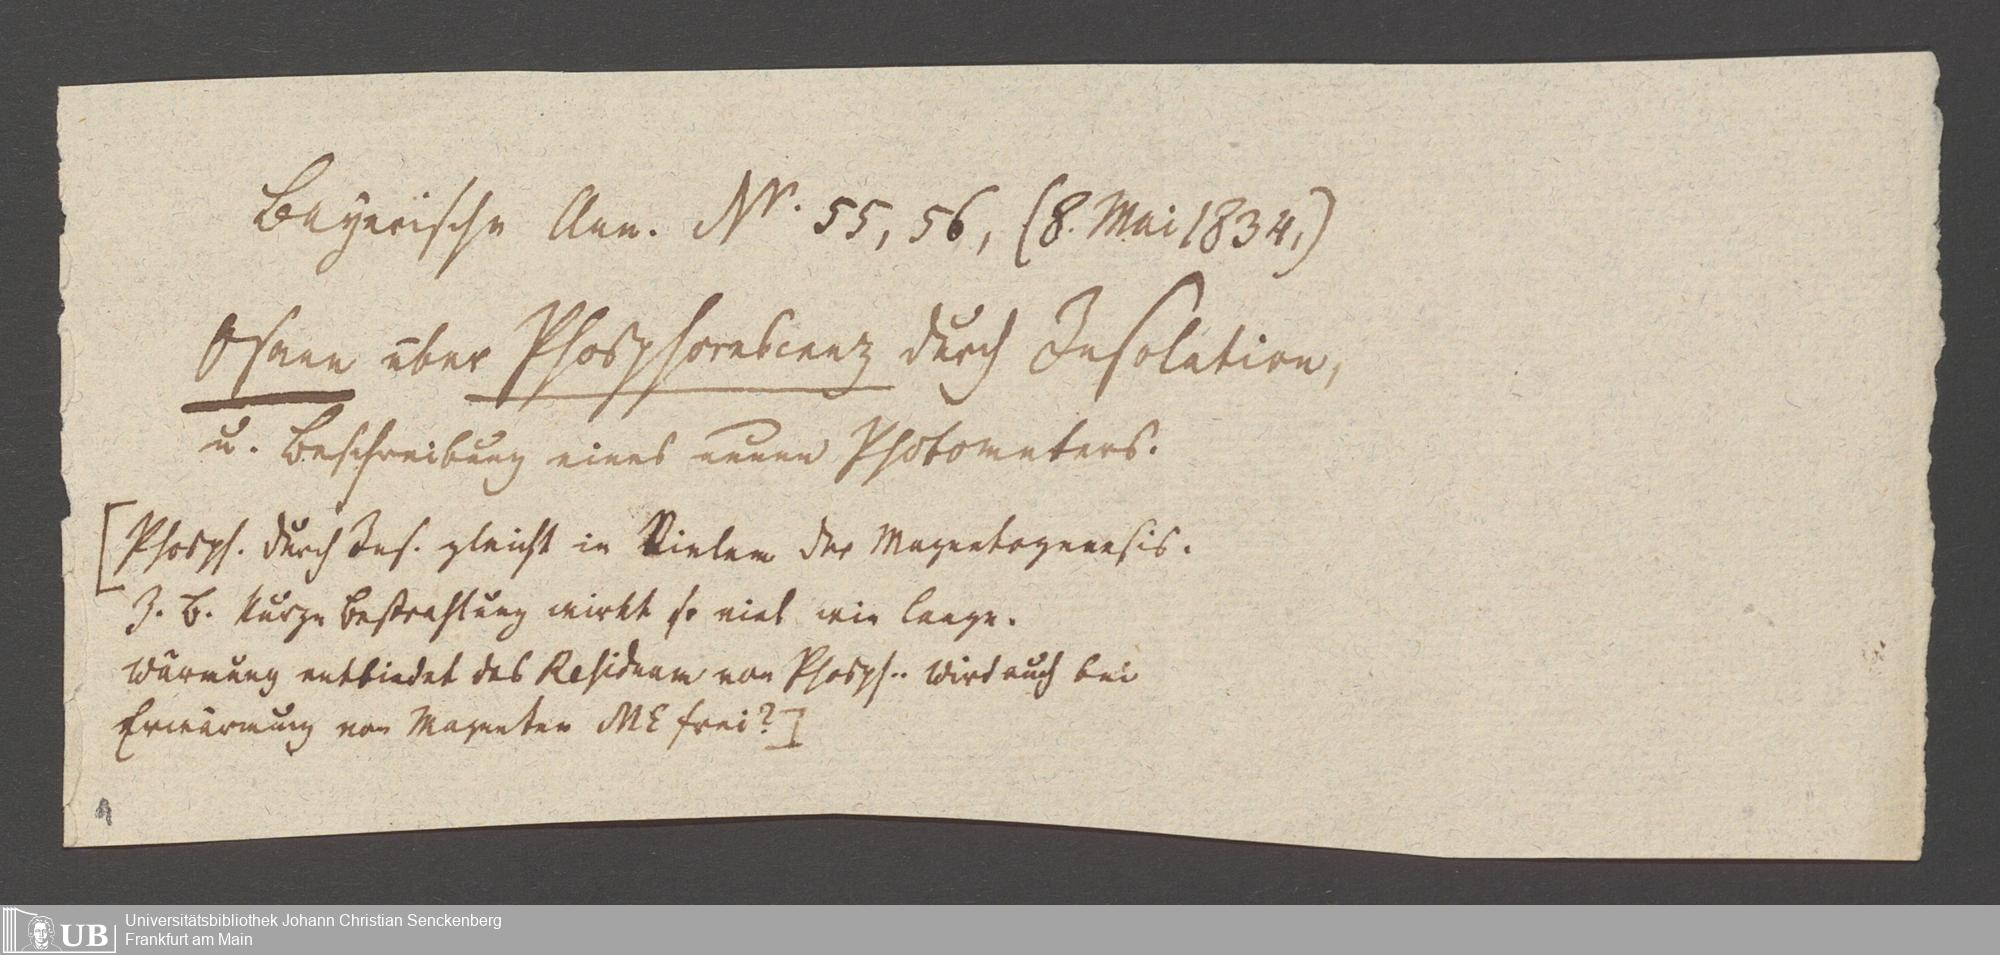 Bayerische Ann. Nr. 55, 56, (8. Mai 1834,)
Osann über Phosphorescenz durch Insolation,
u. Beschreibung eines neuen Photometers.
[Phosph. durch Ins. gleicht in Vielem der Magnetogenesis.
Z. B. Kurze Bestrahlung wirkt so viel wie lange.
Wärmung entbindet das Residuum von Phosph.. Wird auch bei
Erwärmung von Magneten ME frei?]
UB
Universitätsbibliothek Johann Christian Senckenberg
Frankfurt am Main